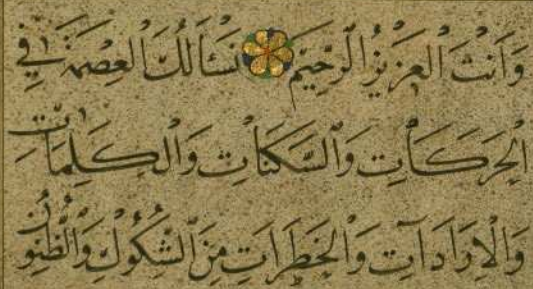 وَاَنْتَ الْعَزِيزُ الرَّحِيمُ نَسْأَلُكَ الْعِصْمَةَ فِي
الْحَرَكَاتِ وَالسَّكَنَاتِ وَالْكَلِمَاتِ
وَالْاِرَادَاتِ وَالْخَطَرَاتِ مِنَ الشُّكُوكِ وَالظُّنُونِ